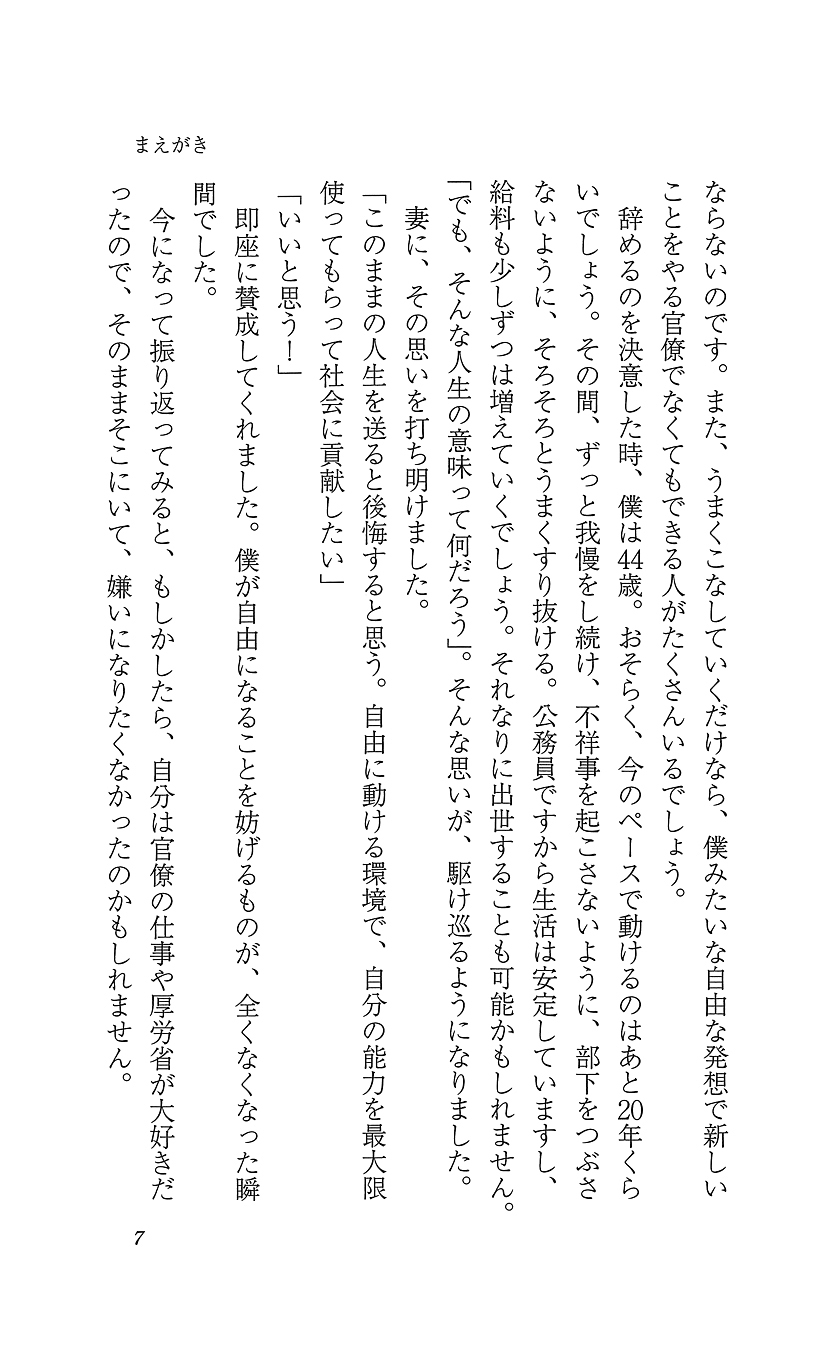 まえがき
ならないのです。また、うまくこなしていくだけなら、僕みたいな自由な発想で新しい
ことをやる官僚でなくてもできる人がたくさんいるでしょう。
辞めるのを決意した時、僕は44歳。おそらく、今のペースで動けるのはあと20年くら
いでしょう。その間、ずっと我慢をし続け、不祥事を起こさないように、部下をつぶさ
ないように、そろそろとうまくすり抜ける。公務員ですから生活は安定していますし、
給料も少しずつは増えていくでしょう。それなりに出世することも可能かもしれません。
「でも、そんな人生の意味って何だろう」。そんな思いが、駆け巡るようになりました。
妻に、その思いを打ち明けました。
「このままの人生を送ると後悔すると思う。自由に動ける環境で、自分の能力を最大限
使ってもらって社会に貢献したい」
「いいと思う！」
即座に賛成してくれました。僕が自由になることを妨げるものが、全くなくなった瞬
間でした。
今になって振り返ってみると、もしかしたら、自分は官僚の仕事や厚労省が大好きだ
ったので、そのままそこにいて、嫌いになりたくなかったのかもしれません。
7